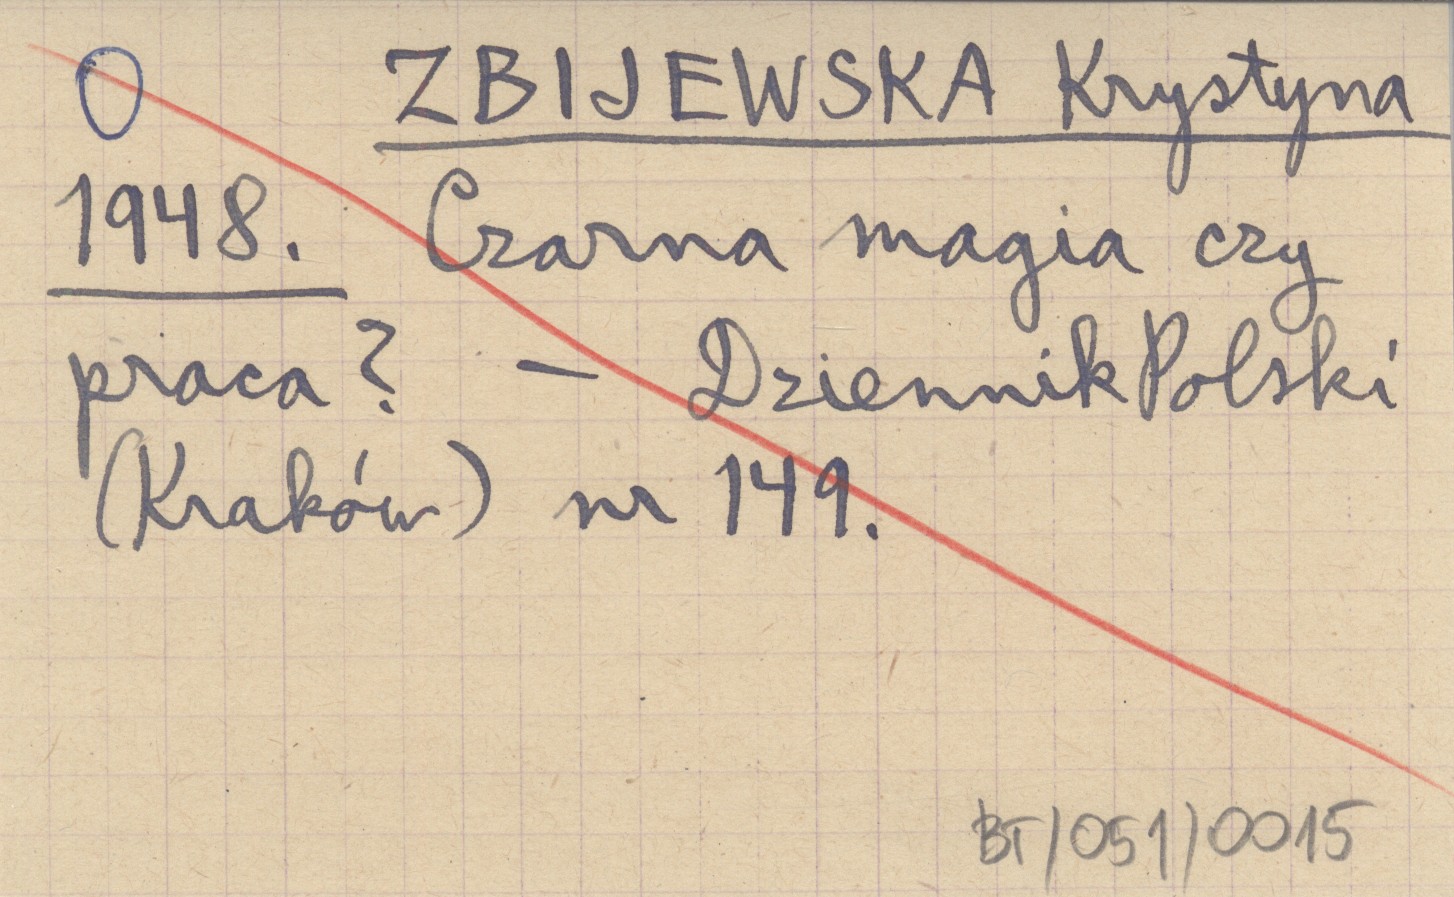 O ZBIJEWSKA Krystyna
1948. Czarna magia czy
praca? – Dziennik Polski
(Kraków) nr 149.
BT/051/0015